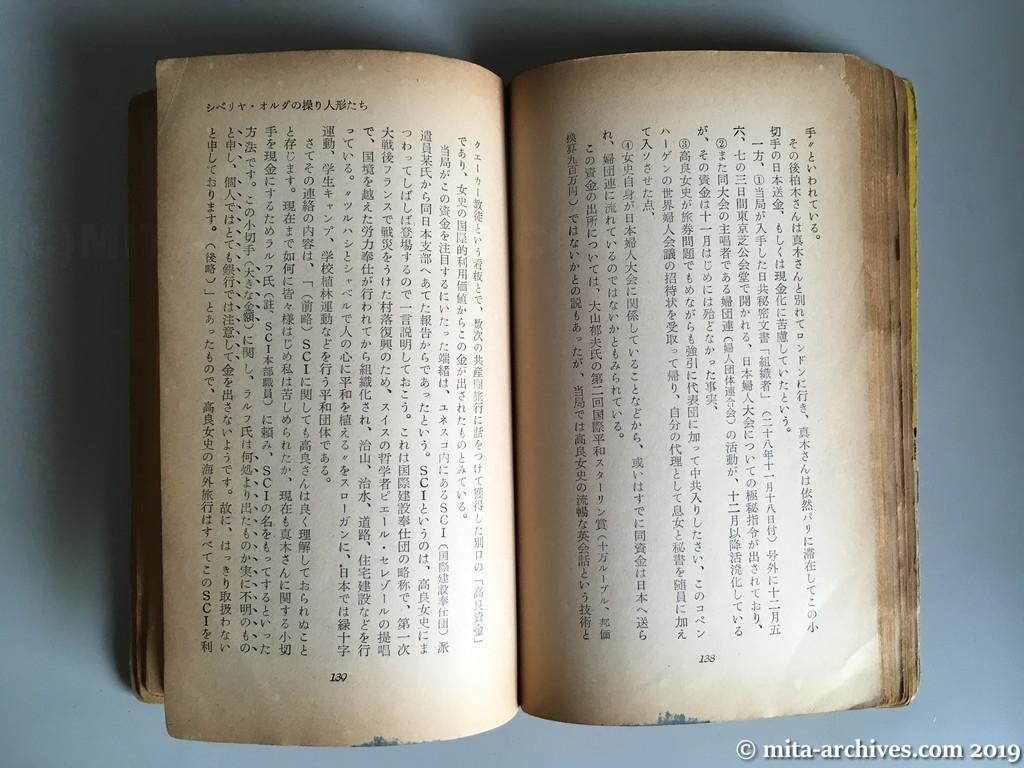 手〟といわれている。
その後柏木さんは真木さんと別れてロンドンに行き、真木さんは依然パリに滞在してこの小
切手の日本送金、もしくは現金化に苦慮していたという。
一方、①当局が入手した日共秘密文書「組織者」（二十八年十一月十八日付）号外に十二月五
六、七の三日間東京芝公会堂で開かれる、日本婦人大会についての極秘指令が出されており、
②また同大会の主唱者である婦団連（婦人団体連合会）の活動が、十二月以降活溌化している
が、その資金は十一月はじめには殆どなかった事実、
③高良女史が旅券問題でもめながらも強引に代表団に加って中共入りしたさい、このコペン
ハーゲンの世界婦人会議の招待状を受取って帰り、自分の代理として息女と秘書を随員に加え
て入ソさせた点、
④女史自身が日本婦人大会に関係していることなどから、或いはすでに同資金は日本へ送ら
れ、婦団連に流れているのではないかともみられている。
この資金の出所については、大山郁夫氏の第二回国際平和スターリン賞（十万ルーブル、邦価
換算九百万円）ではないかとの説もあったが、当局では高良女史の流暢な英会話という技術と
138
シベリヤ・オルグの操り人形たち
クェーカー教徒という看板とで、数次の共産圏旅行に話をつけて獲得した別口の「高良資金」
であり、女史の国際的利用価値からこの金が出されたものとみている。
当局がこの資金を注目するにいたった端緒は、ユネスコ内にあるＳＣＩ（国際建設奉仕団）派
遣員某氏から同日本支部へあてた報告からであったという。ＳＣＩというのは、高良女史にま
つわってしばしば登場するので一言説明しておこう。これは国際建設奉仕団の略称で、第一次
大戦後フランスで戦災をうけた村落復興のため、スイスの哲学者ピエール・セレゾールの提唱
で、国境を越えた労力奉仕が行われてから組織化され、治山、治水、道路、住宅建設などを行
っている。〝ツルハシとシャベルで人の心に平和を植える〟をスローガンに、日本では緑十字
運動、学生キャンプ、学校植林運動などを行う平和団体である。
さてその連絡の内容は、「（前略）ＳＣＩに関しても高良さんは良く理解しておられぬこと
と存じます。現在まで如何に皆々様はじめ私は苦しめられたか、現在も真木さんに関する小切
手を現金にするためラルフ氏（註、ＳＣＩ本部職員）に頼み、ＳＣＩの名をもってするといった
方法です。この小切手（大きな金額）に関し、ラルフ氏は何処より出たものか実に不明のもの
と申し、個人ではとても銀行では注意して金を出さないようです。故に、はっきり取扱わない
と申しております。（後略）」とあったもので、高良女史の海外旅行はすべてこのＳＣＩを利
139
© mita-archives.com 2019